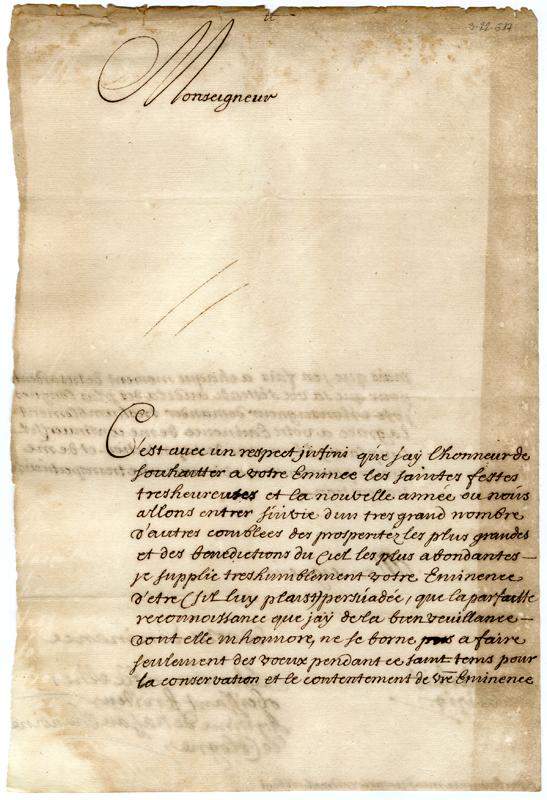 3-22-617
Monseigneur
C'est avec un respect jnfini que jay l'honneur de
souhaitter a votre Eminēe les saintes festes
tresheureuses et la nouvelle année ou nous
allons entrer suivie dun tres grand nombre
d'autres comblées des prosperitez les plus grandes
et des benedictions du Ciel les plus abondantes —
je supplie treshumblement votre Eminence
d'etre (s'il luy plaist) persuadée, que la parfaitte
reconnoissance que jay de la bien veuillance —
dont elle mhonnore, ne se borne pas a faire
seulement des voeux pendant ce saint tems pour
la conservation et le contentement de vre Eminence